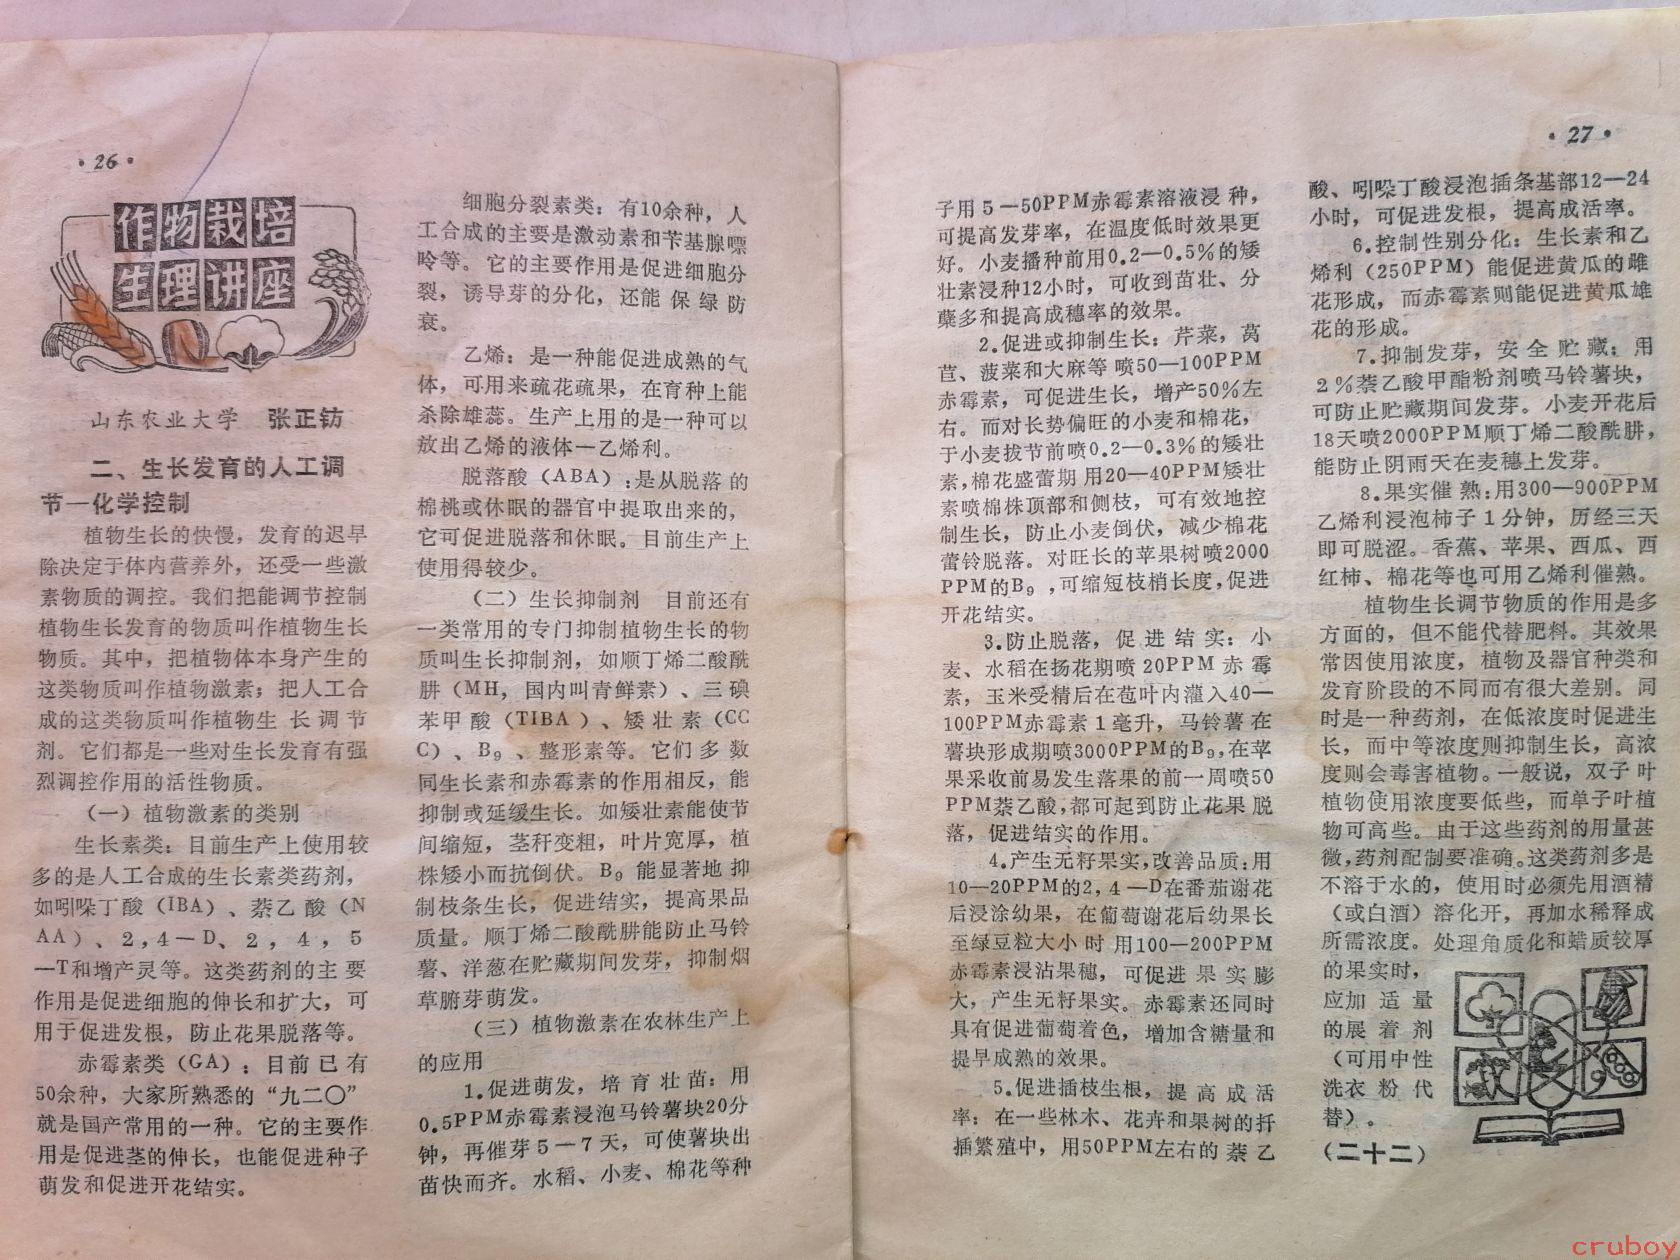 ·26·
作物栽培
生理讲座
山东农业大学 张正钫
二、生长发育的人工调
节—化学控制
植物生长的快慢，发育的迟早
除决定于体内营养外，还受一些激
素物质的调控。我们把能调节控制
植物生长发育的物质叫作植物生长
物质。其中，把植物体本身产生的
这类物质叫作植物激素；把人工合
成的这类物质叫作植物生长调节
剂。它们都是一些对生长发育有强
烈调控作用的活性物质。
（一）植物激素的类别
生长素类：目前生产上使用较
多的是人工合成的生长素类药剂，
如吲哚丁酸（IBA）、萘乙酸（N
AA）、2,4—D、2，4，5
—T和增产灵等。这类药剂的主要
作用是促进细胞的伸长和扩大，可
用于促进发根，防止花果脱落等。
赤霉素类（GA）：目前已有
50余种，大家所熟悉的“九二〇”
就是国产常用的一种。它的主要作
用是促进茎的伸长，也能促进种子
萌发和促进开花结实。
细胞分裂素类：有10余种，人
工合成的主要是激动素和苄基腺嘌
呤等。它的主要作用是促进细胞分
裂，诱导芽的分化，还能保绿防
衰。
乙烯：是一种能促进成熟的气
体，可用来疏花疏果，在育种上能
杀除雄蕊。生产上用的是一种可以
放出乙烯的液体—乙烯利。
脱落酸（ABA）：是从脱落的
棉桃或休眠的器官中提取出来的，
它可促进脱落和休眠。目前生产上
使用得较少。
（二）生长抑制剂 目前还有
一类常用的专门抑制植物生长的物
质叫生长抑制剂，如顺丁烯二酸酰
肼（MH，国内叫青鲜素）、三碘
苯甲酸（TIBA）、矮壮素（CC
C）、B₉、整形素等。它们多数
同生长素和赤霉素的作用相反，能
抑制或延缓生长。如矮壮素能使节
间缩短，茎秆变粗，叶片宽厚，植
株矮小而抗倒伏。B₉能显著地抑
制枝条生长，促进结实，提高果品
质量。顺丁烯二酸酰肼能防止马铃
薯、洋葱在贮藏期间发芽，抑制烟
草腑芽萌发。
（三）植物激素在农林生产上
的应用
1.促进萌发，培育壮苗：用
0.5PPM赤霉素浸泡马铃薯块20分
钟，再催芽5—7天，可使薯块出
苗快而齐。水稻、小麦、棉花等种
·27·
子用5—50PPM赤霉素溶液浸种，
可提高发芽率，在温度低时效果更
好。小麦播种前用0.2—0.5%的矮
壮素浸种12小时，可收到苗壮、分
蘖多和提高成穗率的效果。
2.促进或抑制生长：芹菜，莴
苣、菠菜和大麻等喷50—100PPM
赤霉素，可促进生长，增产50%左
右。而对长势偏旺的小麦和棉花，
于小麦拔节前喷0.2—0.3%的矮壮
素，棉花盛蕾期用20—40PPM矮壮
素喷棉株顶部和侧枝，可有效地控
制生长，防止小麦倒伏，减少棉花
蕾铃脱落。对旺长的苹果树喷2000
PPM的B₉，可缩短枝梢长度，促进
开花结实。
3.防止脱落，促进结实：小
麦、水稻在扬花期喷20PPM赤霉
素，玉米受精后在苞叶内灌入40—
100PPM赤霉素1毫升，马铃薯在
薯块形成期喷3000PPM的B₉，在苹
果采收前易发生落果的前一周喷50
PPM萘乙酸，都可起到防止花果脱
落，促进结实的作用。
4.产生无籽果实，改善品质：用
10—20PPM的2，4—D在番茄谢花
后浸涂幼果，在葡萄谢花后幼果长
至绿豆粒大小时用100—200PPM
赤霉素浸沾果穗，可促进果实膨
大，产生无籽果实。赤霉素还同时
具有促进葡萄着色，增加含糖量和
提早成熟的效果。
5.促进插枝生根，提高成活
率：在一些林木、花卉和果树的扦
插繁殖中，用50PPM左右的萘乙
酸、吲哚丁酸浸泡插条基部12—24
小时，可促进发根，提高成活率。
6.控制性别分化：生长素和乙
烯利（250PPM）能促进黄瓜的雌
花形成，而赤霉素则能促进黄瓜雄
花的形成。
7.抑制发芽，安全贮藏：用
2%萘乙酸甲酯粉剂喷马铃薯块，
可防止贮藏期间发芽。小麦开花后
18天喷2000PPM顺丁烯二酸酰肼，
能防止阴雨天在麦穗上发芽。
8.果实催熟：用300—900PPM
乙烯利浸泡柿子1分钟，历经三天
即可脱涩。香蕉、苹果、西瓜、西
红柿、棉花等也可用乙烯利催熟。
植物生长调节物质的作用是多
方面的，但不能代替肥料。其效果
常因使用浓度，植物及器官种类和
发育阶段的不同而有很大差别。同
时是一种药剂，在低浓度时促进生
长，而中等浓度则抑制生长，高浓
度则会毒害植物。一般说，双子叶
植物使用浓度要低些，而单子叶植
物可高些。由于这些药剂的用量甚
微，药剂配制要准确。这类药剂多是
不溶于水的，使用时必须先用酒精
（或白酒）溶化开，再加水稀释成
所需浓度。处理角质化和蜡质较厚
的果实时，
应加适量
的展着剂
（可用中性
洗衣粉代
替）。
（二十二）
cruboy